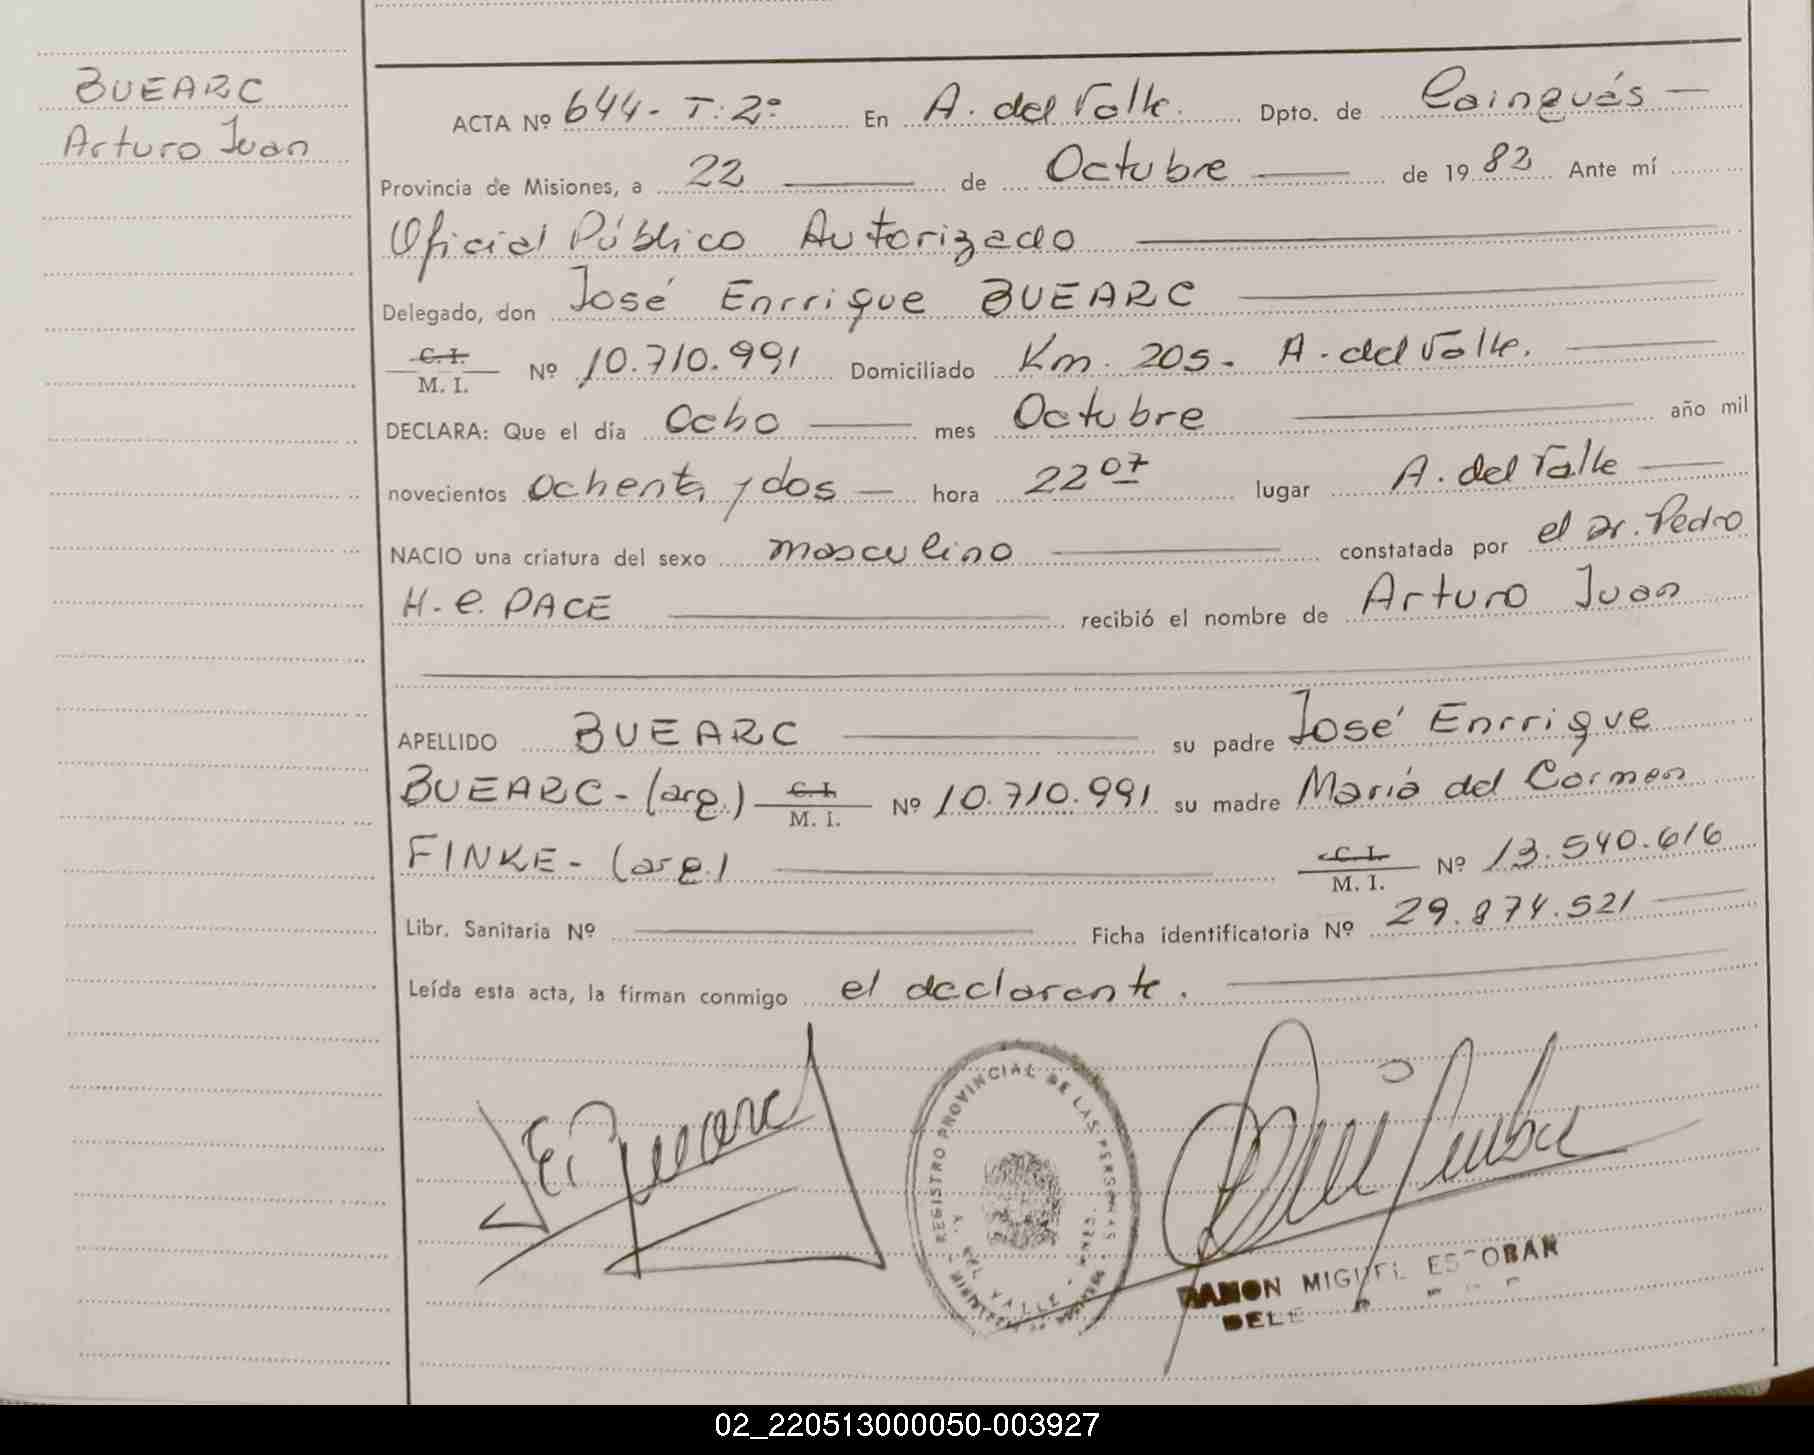 BUEARC
Arturo Juan
ACTA Nº 644- T: 2º En A. del Valle. Dpto. de Cainguás —
Provincia de Misiones, a 22 — de Octubre — de 1982 Ante mí
Oficial Público Autorizado
Delegado, don José Enrrique BUEARC
C. I.
M. I. Nº 10.710.991 Domiciliado Km. 205- A. del Valle.
DECLARA: Que el día Ocho — mes Octubre — año mil
novecientos ochenta y dos — hora 22 07 lugar A. del Valle —
NACIO una criatura del sexo masculino — constatada por el Dr. Pedro
H. C. PACE — recibió el nombre de Arturo Juan
APELLIDO BUEARC — su padre José Enrrique
BUEARC - (arg.) C. I.
M. I. Nº 10.710.991 su madre María del Carmen
FINKE - (arg.) — C. I.
M. I. Nº 13.540.616
Libr. Sanitaria Nº — Ficha identificatoria Nº 29.874.521 —
Leída esta acta, la firman conmigo el declarante. —
REGISTRO PROVINCIAL DE LAS PERSONAS
A. DEL VALLE
RAMON MIGUEL ESCOBAR
02_220513000050-003927